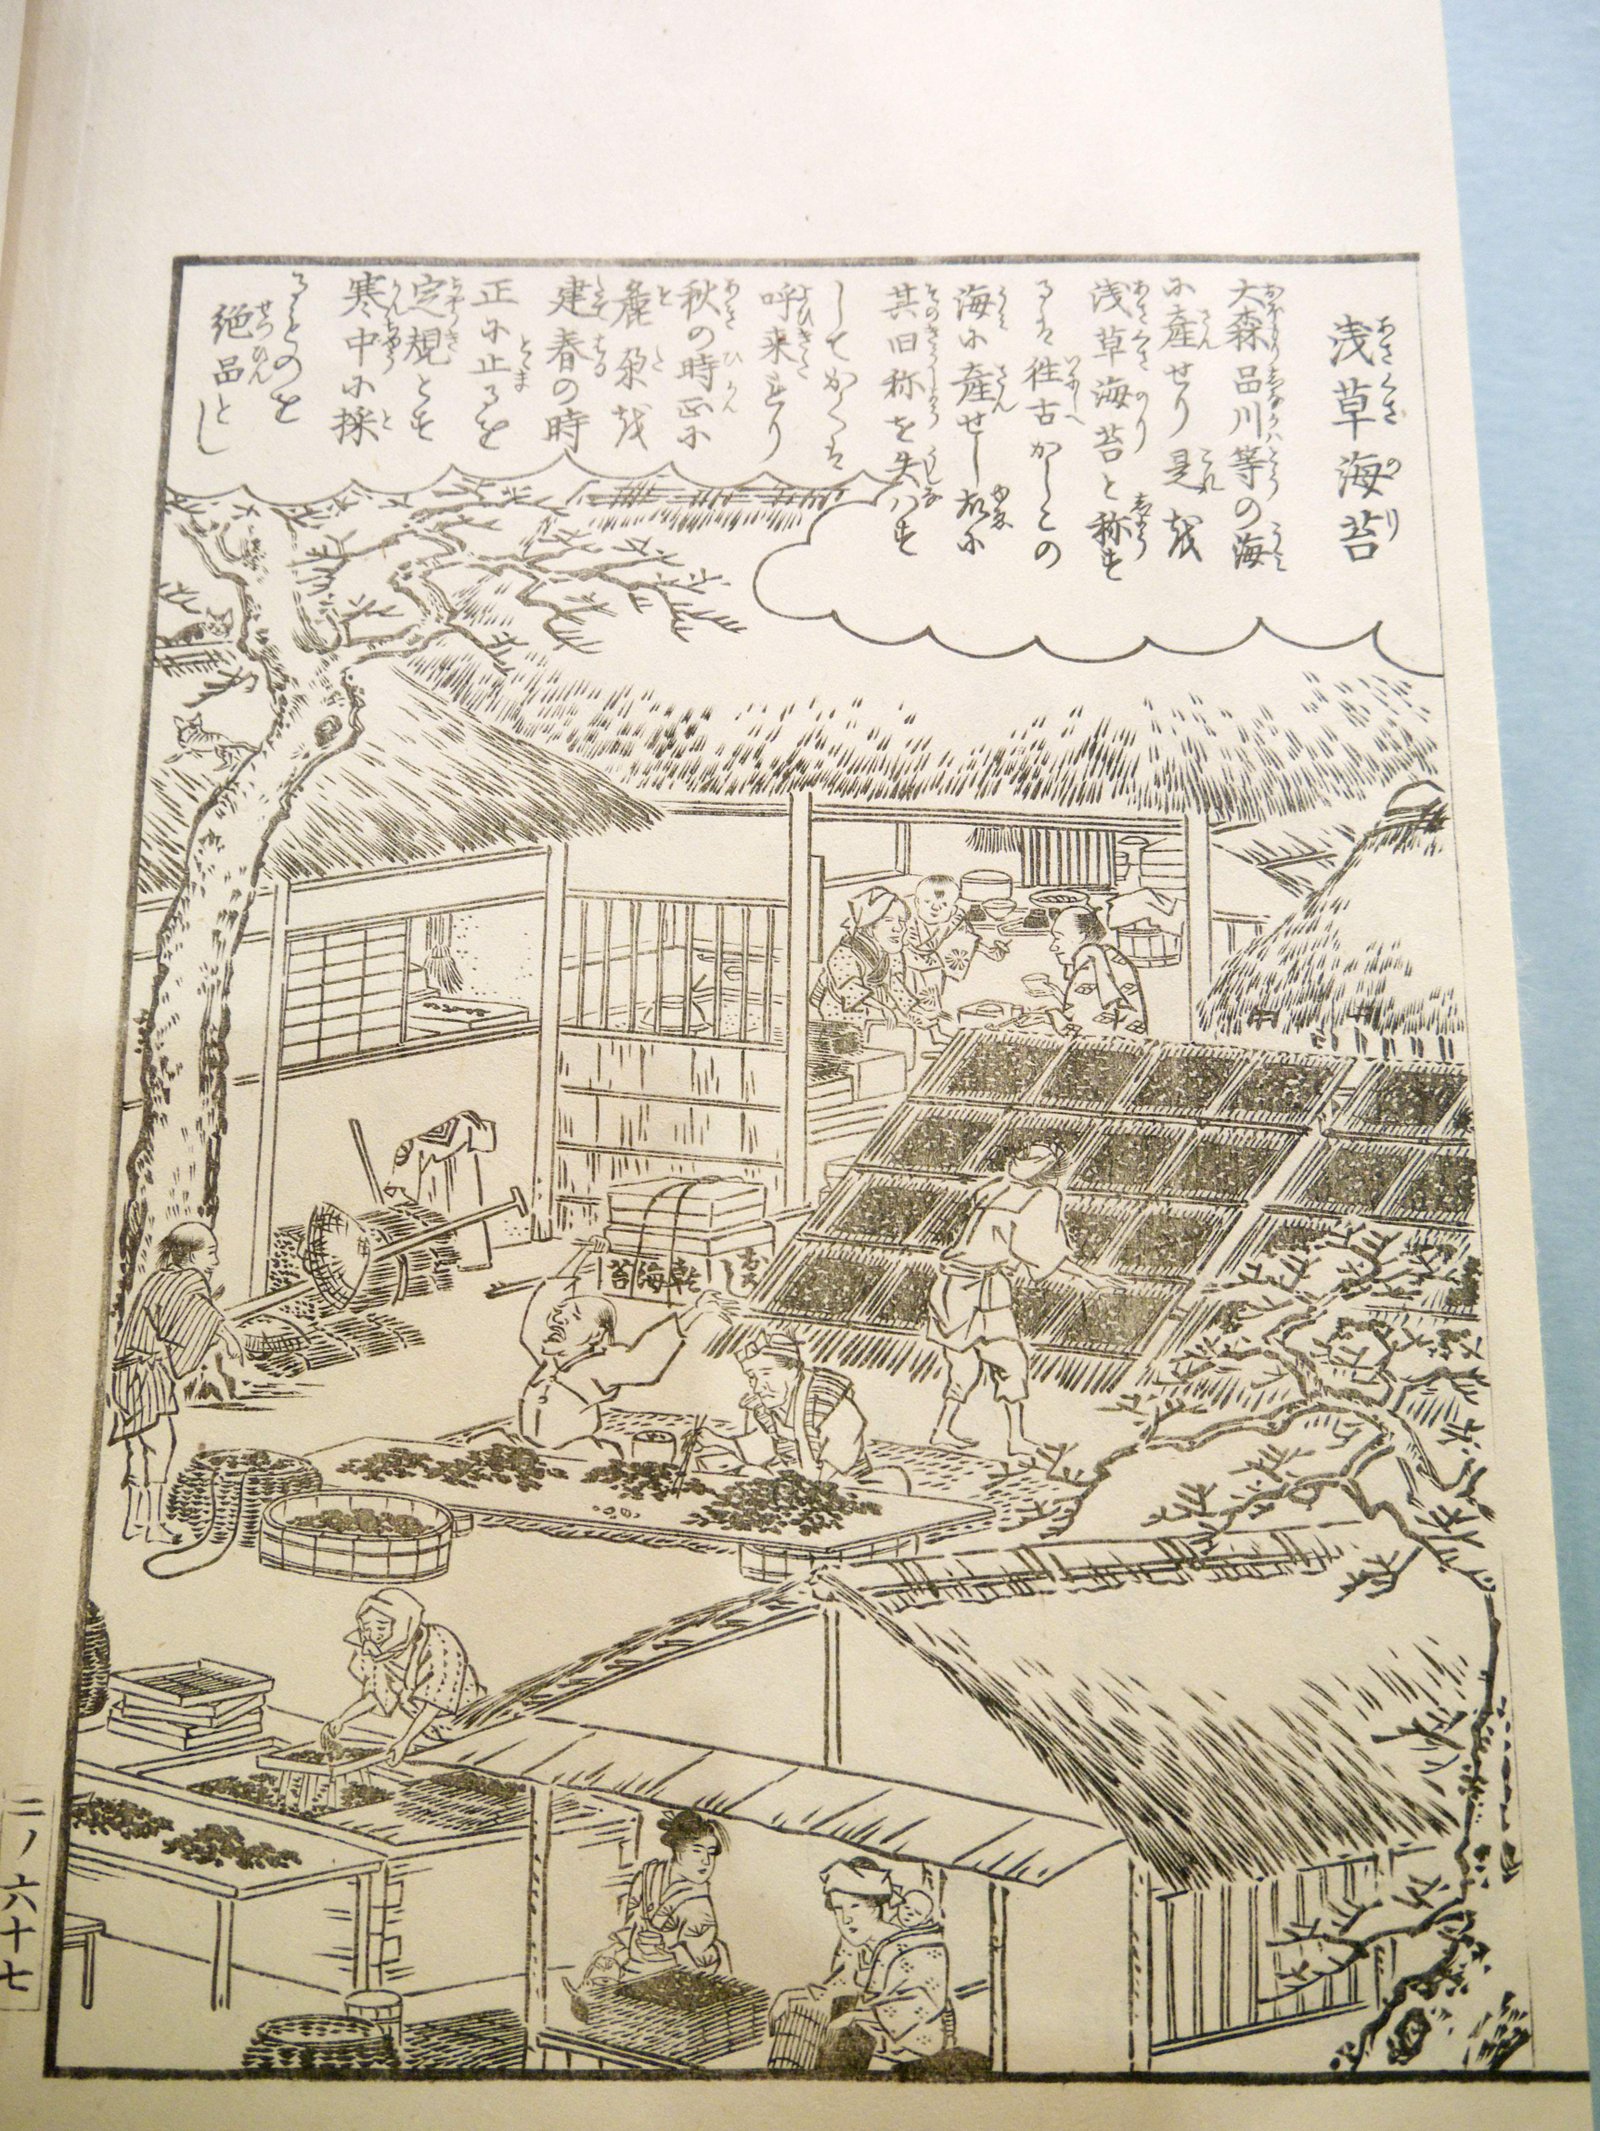 浅草海苔
大森品川等の海
に産せり是を
浅草海苔と称す
るは往古かしこの
海に産せし故に
其旧称を失はず
してかくは
呼来れり
秋の時正に
麁朶を
建春の時
正に止るを
定規とす
寒中に採
るものを
絶品とし
二ノ六十七